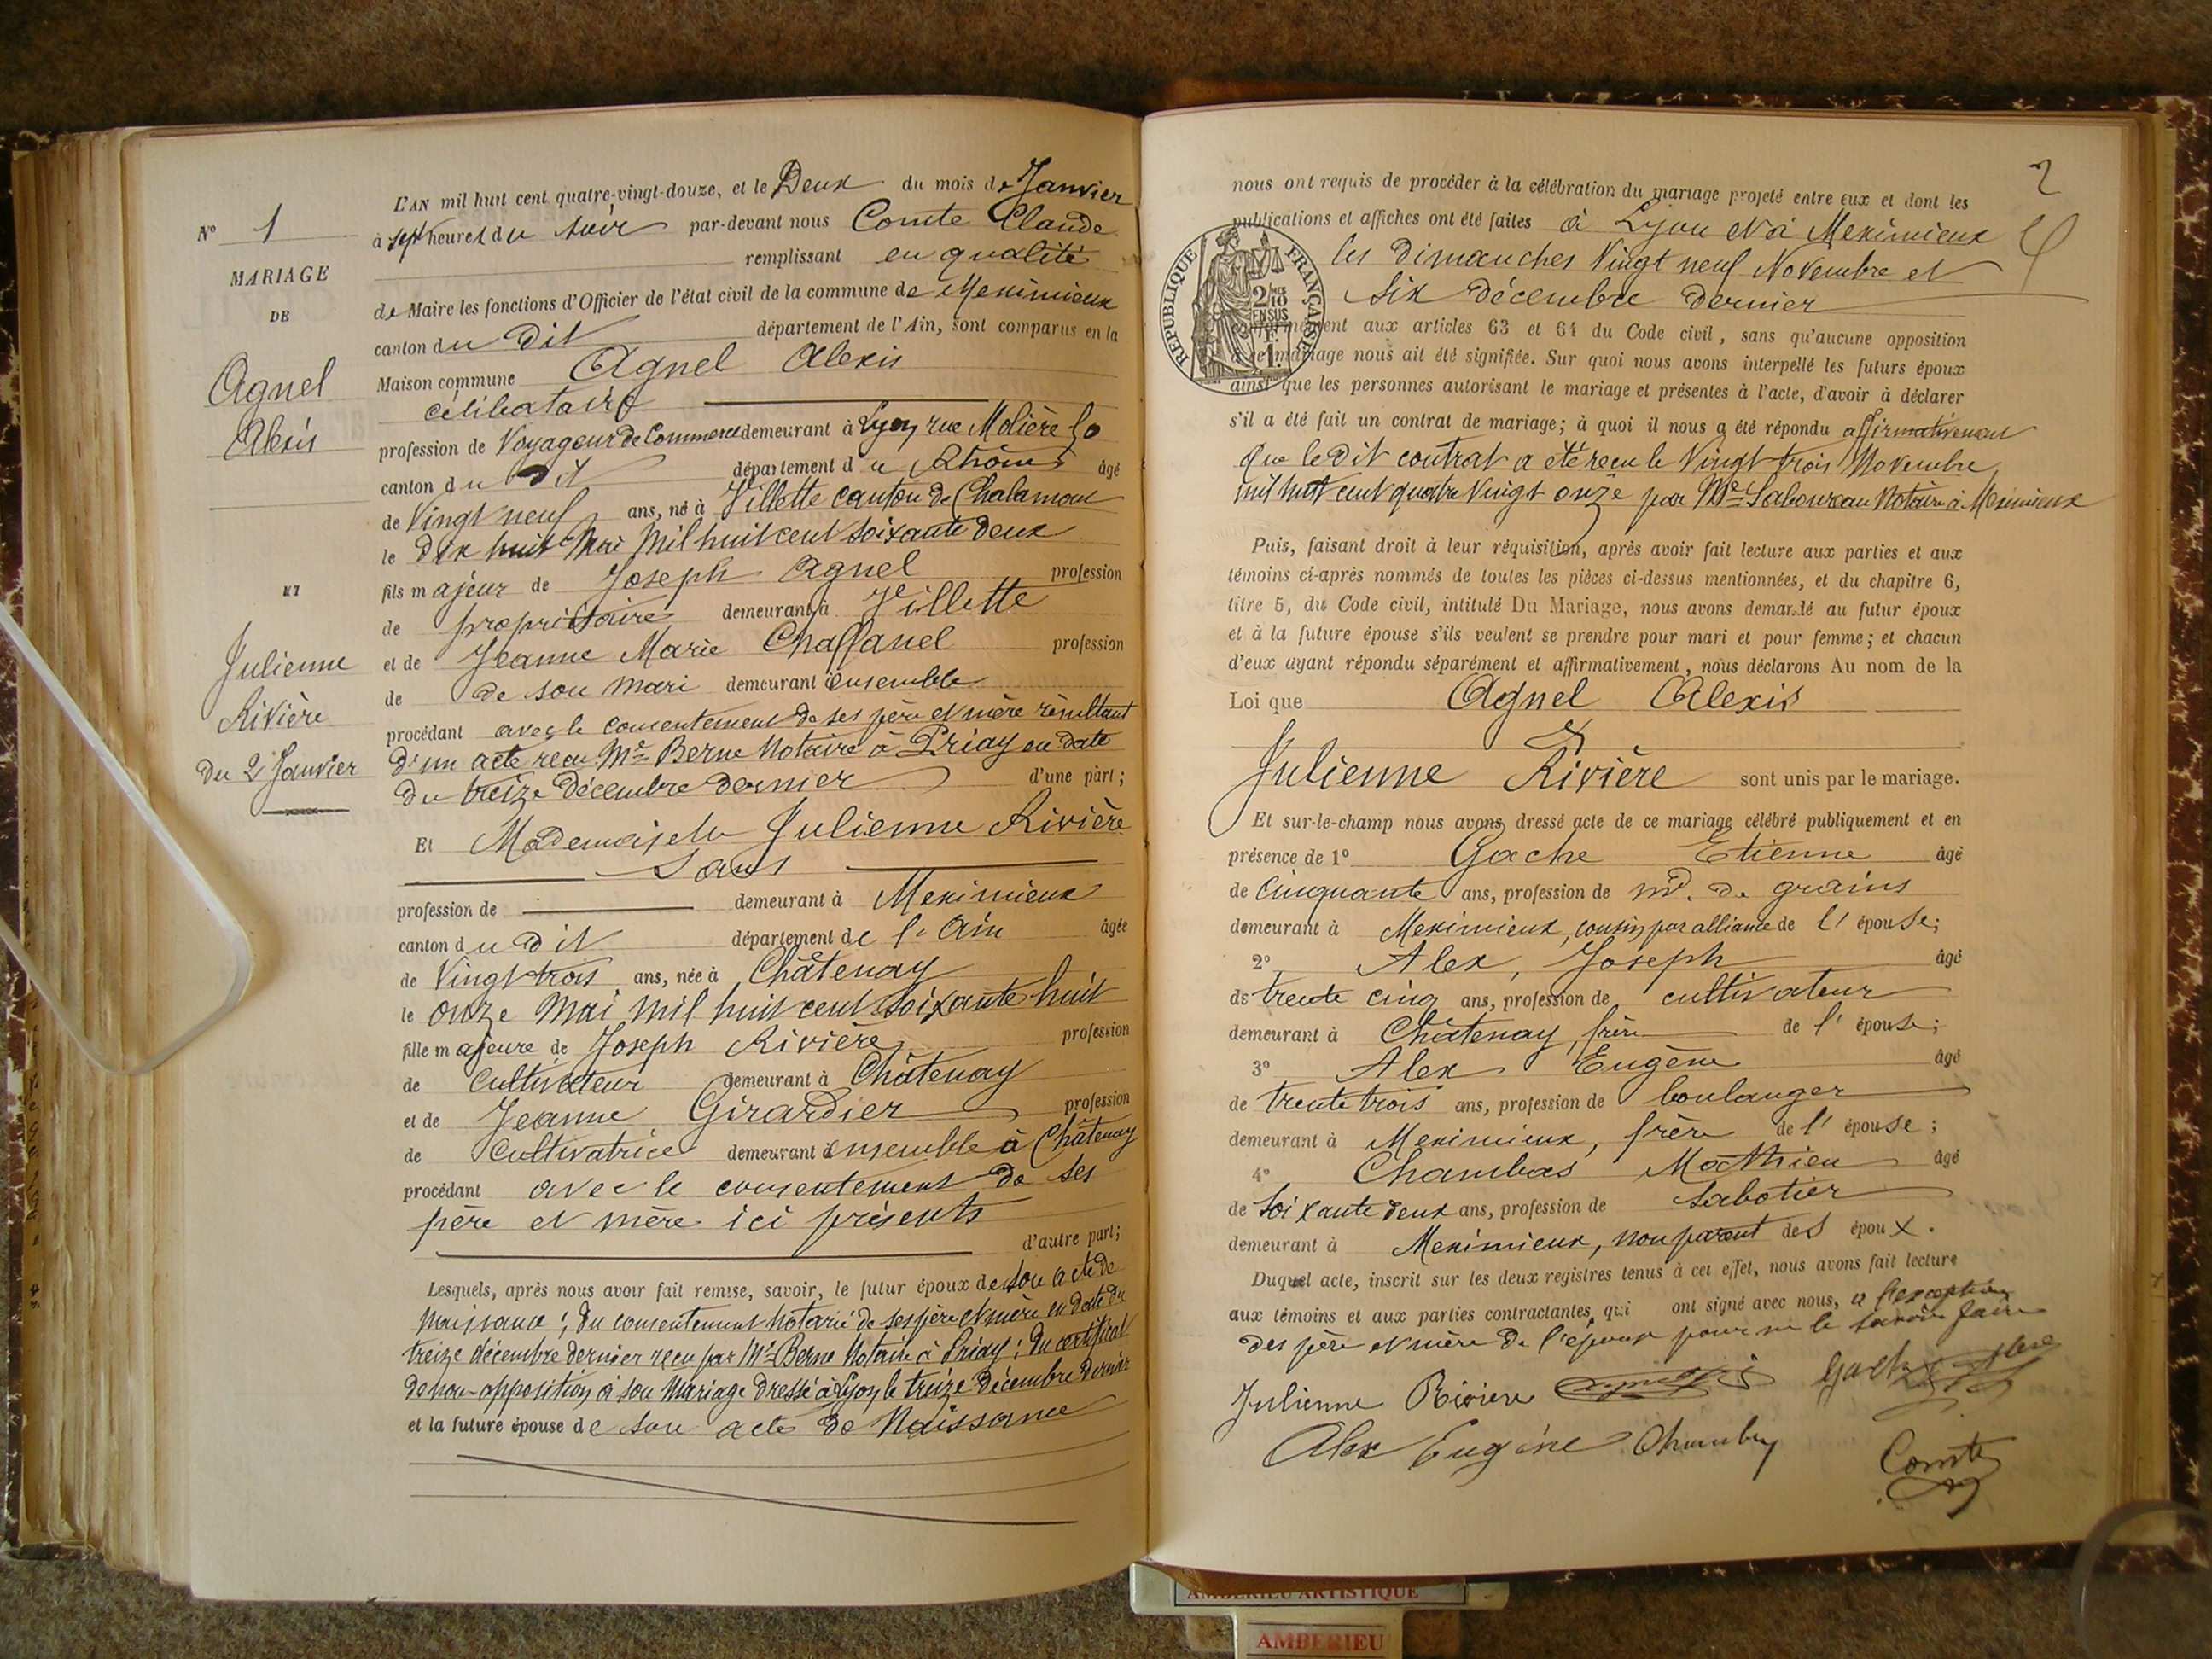 N° 1
MARIAGE
DE
Agnel
Alexis
ET
Julienne
Rivière
du 2 Janvier
L'AN mil huit cent quatre-vingt-douze, et le Deux du mois de Janvier
à sept heures du soir par-devant nous Comte Claude
remplissant en qualité
de Maire les fonctions d'Officier de l'état civil de la commune de Meximieux
canton du dit département de l'Ain, sont comparus en la
Maison commune Agnel Alexis
célibataire
profession de Voyageur de Commerce demeurant à Lyon, rue Molière
canton du dit département du Rhône âgé
de Vingt neuf ans, né à Villette canton de Chalamont
le dix huit Mai Mil huit cent soixante deux
fils majeur de Joseph Agnel profession
de propriétaire demeurant à Villette
et de Jeanne Marie Chaffanel profession
de de son mari demeurant ensemble
procédant avec le consentement de ses père et mère résultant
d'un acte recu Me Berne Notaire à Priay en date
du treize décembre dernier d'une part;
Et Mademoiselle Julienne Rivière
Sans
profession de demeurant à Meximieux
canton du dit département de l'Ain âgée
de Vingt trois ans, née à Châtenay
le onze Mai mil huit cent soixante huit
fille majeure de Joseph Rivière profession
de Cultivateur demeurant à Châtenay
et de Jeanne Girardier profession
de Cultivatrice demeurant ensemble à Châtenay
procédant avec le consentement de ses
père et mère ici présents
d'autre part;
Lesquels, après nous avoir fait remise, savoir, le futur époux de son acte de
Naissance; du consentement Notarié de ses père et mère en date du
treize décembre dernier reçu par Me Berne Notaire à Priay; du certificat
de non-opposition à son Mariage dressé à Lyon, le treize Décembre dernier
et la future épouse de son acte de Naissance
2
nous ont requis de procéder à la célébration du mariage projeté entre eux et dont les
publications et affiches ont été faites à Lyon et à Meximieux
les dimanches Vingt neuf Novembre et
Six décembre dernier
RÉPUBLIQUE FRANÇAISE
2/10
EN SUS
1 F.
conformément aux articles 63 et 64 du Code civil, sans qu'aucune opposition
à ce mariage nous ait été signifiée. Sur quoi nous avons interpellé les futurs époux
ainsi que les personnes autorisant le mariage et présentes à l'acte, d'avoir à déclarer
s'il a été fait un contrat de mariage; à quoi il nous a été répondu affirmativement
que le dit contrat a été recu le Vingt trois Novembre
mil huit cent quatre Vingt onze par Me Laboureau Notaire à Meximieux
Puis, faisant droit à leur réquisition, après avoir fait lecture aux parties et aux
témoins ci-après nommés de toutes les pièces ci-dessus mentionnées, et du chapitre 6,
titre 5, du Code civil, intitulé Du Mariage, nous avons demandé au futur époux
et à la future épouse s'ils veulent se prendre pour mari et pour femme; et chacun
d'eux ayant répondu séparément et affirmativement, nous déclarons Au nom de la
Loi que Agnel Alexis
Et
Julienne Rivière sont unis par le mariage.
Et sur-le-champ nous avons dressé acte de ce mariage célébré publiquement et en
présence de 1° Gache Etienne âgé
de Cinquante ans, profession de md. de grains
demeurant à Meximieux, cousin par alliance de l'épouse;
2° Alex, Joseph âgé
de trente cinq ans, profession de cultivateur
demeurant à Châtenay, frère de l'épouse;
3° Alex Eugène âgé
de trente trois ans, profession de boulanger
demeurant à Meximieux, frère de l'épouse;
4° Chambas Mathieu âgé
de Soixante deux ans, profession de Sabotier
demeurant à Meximieux, non parent des époux.
Duquel acte, inscrit sur les deux registres tenus à cet effet, nous avons fait lecture
aux témoins et aux parties contractantes, qui ont signé avec nous, à l'exception
des père et mère de l'épouse pour ne le savoir faire
Julienne Riviere
Alex Eugène
Comte
AMBERIEU ARTISTIQUE
AMBERIEU